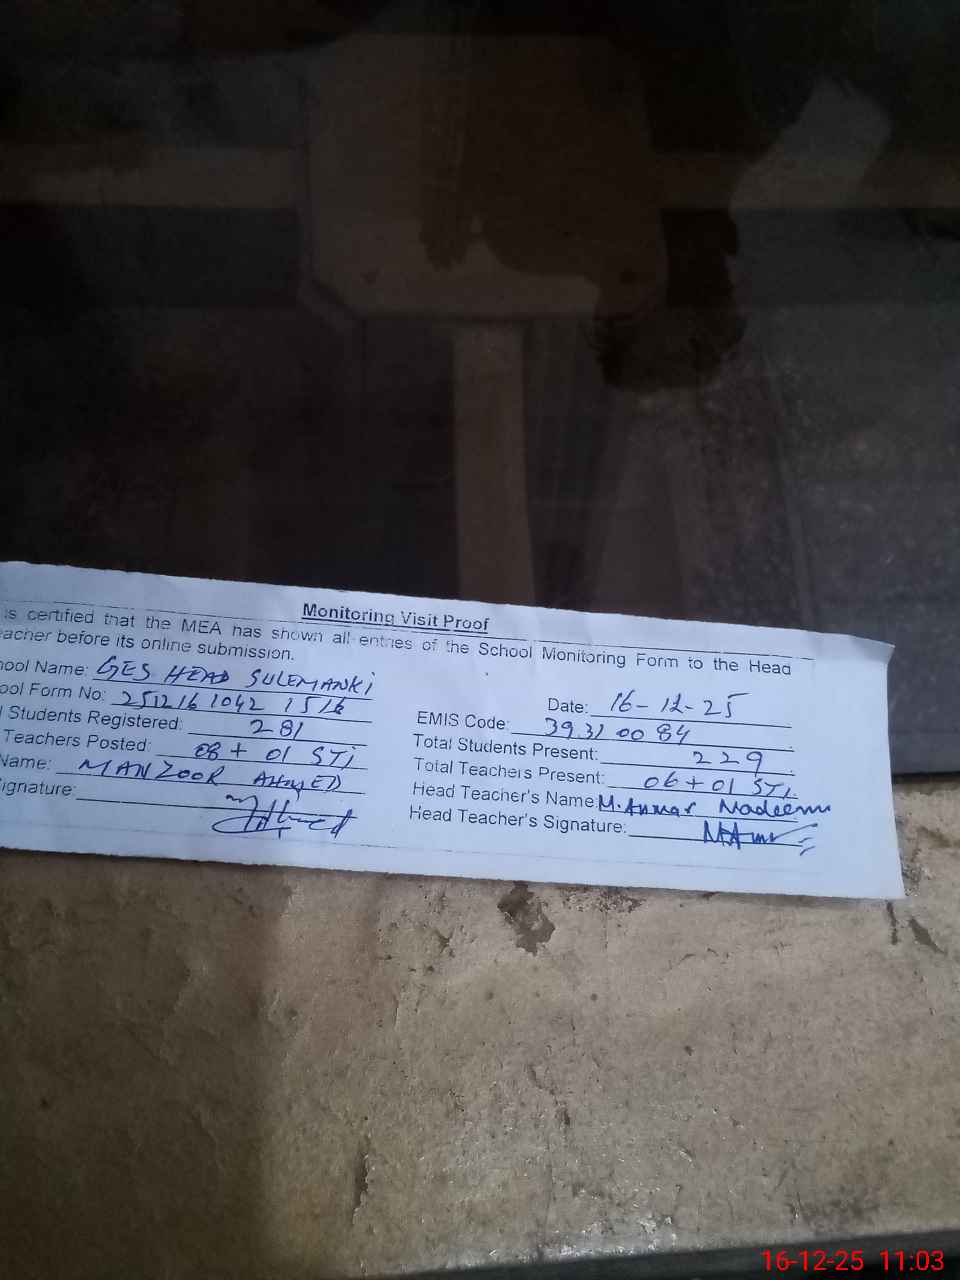 Monitoring Visit Proof
is certified that the MEA has shown all entries of the School Monitoring Form to the Head
eacher before its online submission.
hool Name: GES HEAD SULEMANKI
Date: 16-12-25
ool Form No: 251216 1042 1516
EMIS Code: 39310084
l Students Registered: 281
Total Students Present: 229
Teachers Posted: 08 + 01 STI
Total Teachers Present: 06 + 01 STI
Name: MANZOOR AHMED
Head Teacher's Name: M. Anwar Nadeem
ignature:
Head Teacher's Signature:
16-12-25 11:03